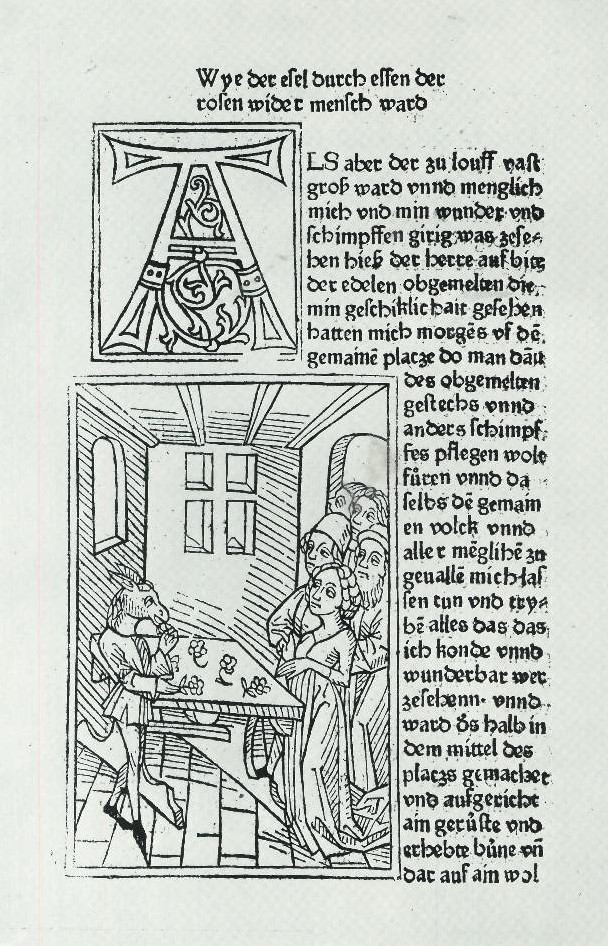 Wye der esel durch essen der
rosen wider mensch ward
ALS aber der zu louff vast
groß ward vnnd menglich
mich vnd min wunder vnd
schimpffen girig was zese⸗
hen hieß der herre auf bitt
der edelen obgemelten die
min geschiklichait gesehen
hatten mich morgēs vf dē
gemainē placze do man dāň
des obgemelten
gestechs vnnd
anders schimpf⸗
fes pflegen wolt
fůren vnnd da
selbs dē gemain
en volck vnnd
aller mēglihē zu
geuallē mich las
sen tun vnd try⸗
bē alles das das
ich konde vnnd
wunderbar wer
zesehenn· vnnd
ward ds halb in
dem mittel des
placzs gemachet
vnd aufgericht
ain gerůste vnd
erhebte bůne vň
dar auf ain wol